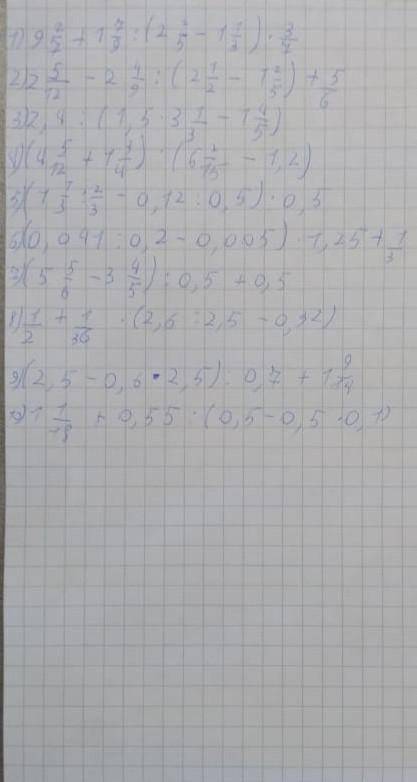 1) 9 2/7 + 1 7/9 : (2 2/5 - 1 1/3) · 3/7
2) 2 5/12 - 2 4/9 : (2 1/2 - 1 2/5) + 5/6
3) 2,4 : (1,5 · 3 1/3 - 1 4/5)
4) (4 5/12 + 1 3/4) : (6 2/15 - 1,2)
5) (1 1/3 : 2/3 - 0,12 : 0,5) · 0,5
6) (0,041 : 0,2 - 0,005) · 1,25 + 1/3
7) (5 5/6 - 3 4/5) : 0,5 + 0,5
8) 1/2 + 1/36 · (2,6 : 2,5 - 0,32)
9) (2,5 - 0,6 · 2,5) : 0,7 + 1 9/14
10) 1 1/18 + 0,55 · (0,5 - 0,5 · 0,1)